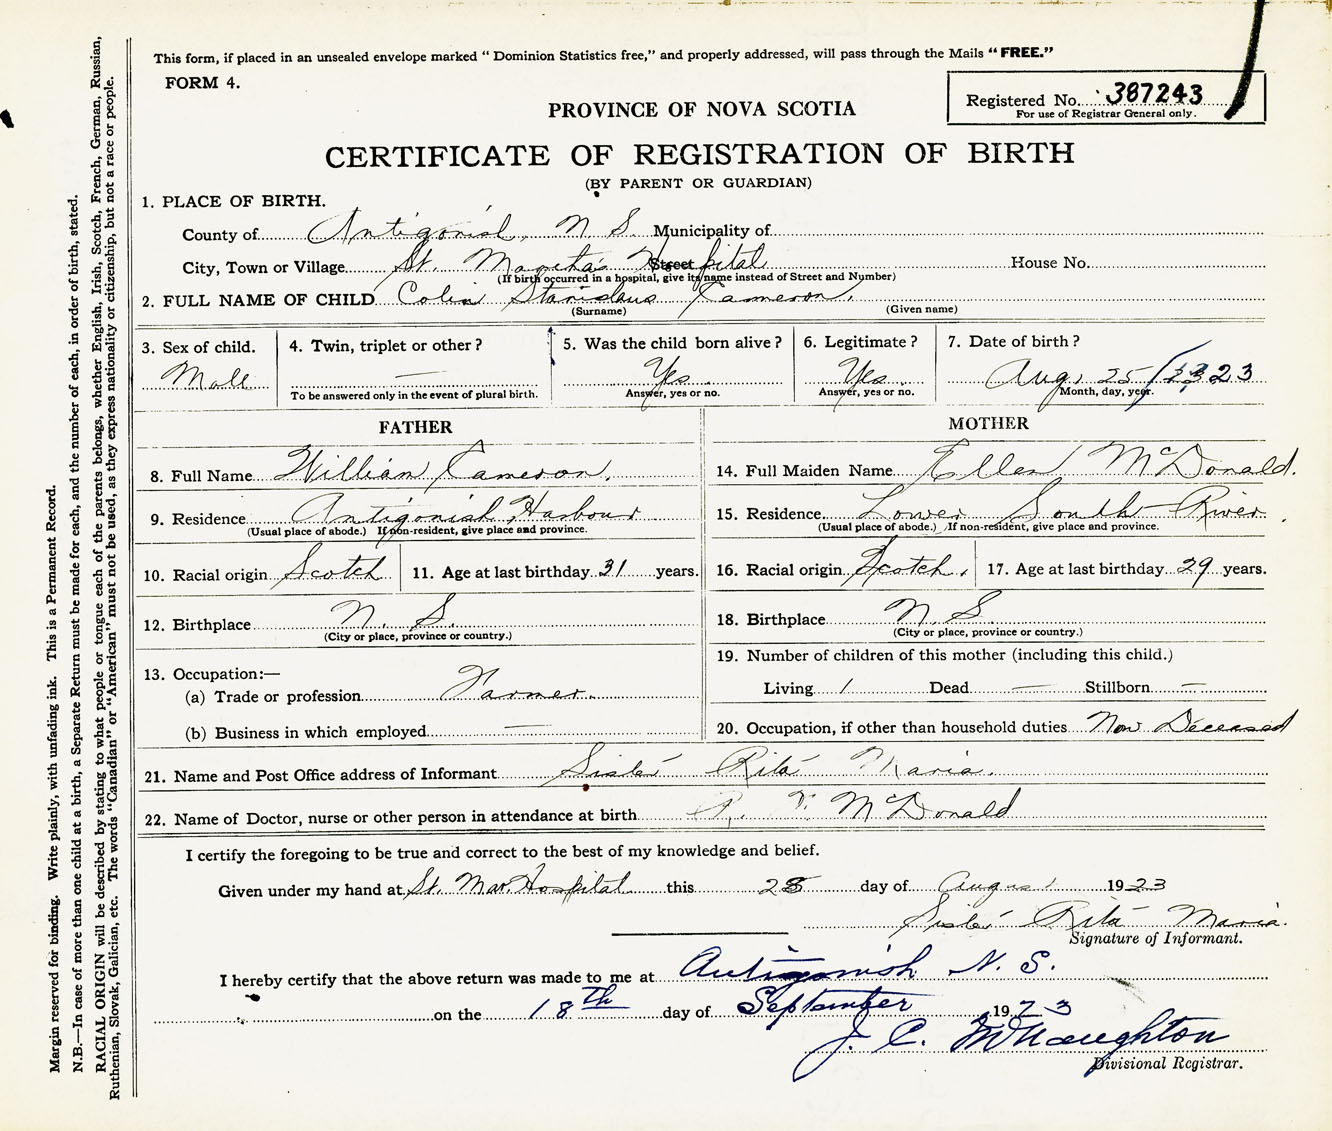 This form, if placed in an unsealed envelope marked “ Dominion Statistics free,” and properly addressed, will pass through the Mails “ FREE.”
FORM 4.
Registered No. 387243
For use of Registrar General only.
PROVINCE OF NOVA SCOTIA
CERTIFICATE OF REGISTRATION OF BIRTH
(BY PARENT OR GUARDIAN)
1. PLACE OF BIRTH.
County of Antigonish, N S. Municipality of
City, Town or Village St. Martha's Hospital Street House No.
(If birth occurred in a hospital, give its name instead of Street and Number)
2. FULL NAME OF CHILD Colin Stanislaus Cameron.
(Surname) (Given name)
3. Sex of child. 4. Twin, triplet or other ? 5. Was the child born alive ? 6. Legitimate ? 7. Date of birth ?
Male — Yes. Yes. Aug. 25/ 23
To be answered only in the event of plural birth. Answer, yes or no. Answer, yes or no. Month, day, year.
FATHER MOTHER
8. Full Name William Cameron. 14. Full Maiden Name Ellen McDonald.
9. Residence Antigonish Harbour 15. Residence Lower South River.
(Usual place of abode.) If non-resident, give place and province. (Usual place of abode.) If non-resident, give place and province.
10. Racial origin Scotch 11. Age at last birthday 31 years. 16. Racial origin Scotch. 17. Age at last birthday 29 years.
12. Birthplace N. S. 18. Birthplace N. S.
(City or place, province or country.) (City or place, province or country.)
19. Number of children of this mother (including this child.)
13. Occupation:—
(a) Trade or profession Farmer. Living 1 Dead — Stillborn —
(b) Business in which employed — 20. Occupation, if other than household duties Now Deceased
21. Name and Post Office address of Informant Sister Rita Maria.
22. Name of Doctor, nurse or other person in attendance at birth R. F. McDonald
I certify the foregoing to be true and correct to the best of my knowledge and belief.
Given under my hand at St. Mar. Hospital this 25 day of August 1923
Sister Rita Maria.
Signature of Informant.
I hereby certify that the above return was made to me at Antigonish N. S.
on the 18th day of September 1923
J. C. McNaughton
Divisional Registrar.
Margin reserved for binding. Write plainly, with unfading ink. This is a Permanent Record.
N.B.—In case of more than one child at a birth, a Separate Return must be made for each, and the number of each, in order of birth, stated.
RACIAL ORIGIN will be described by stating to what people or tongue each of the parents belongs, whether English, Irish, Scotch, French, German, Russian,
Ruthenian, Slovak, Galician, etc. The words “Canadian” or “American” must not be used, as they express nationality or citizenship, but not a race or people.